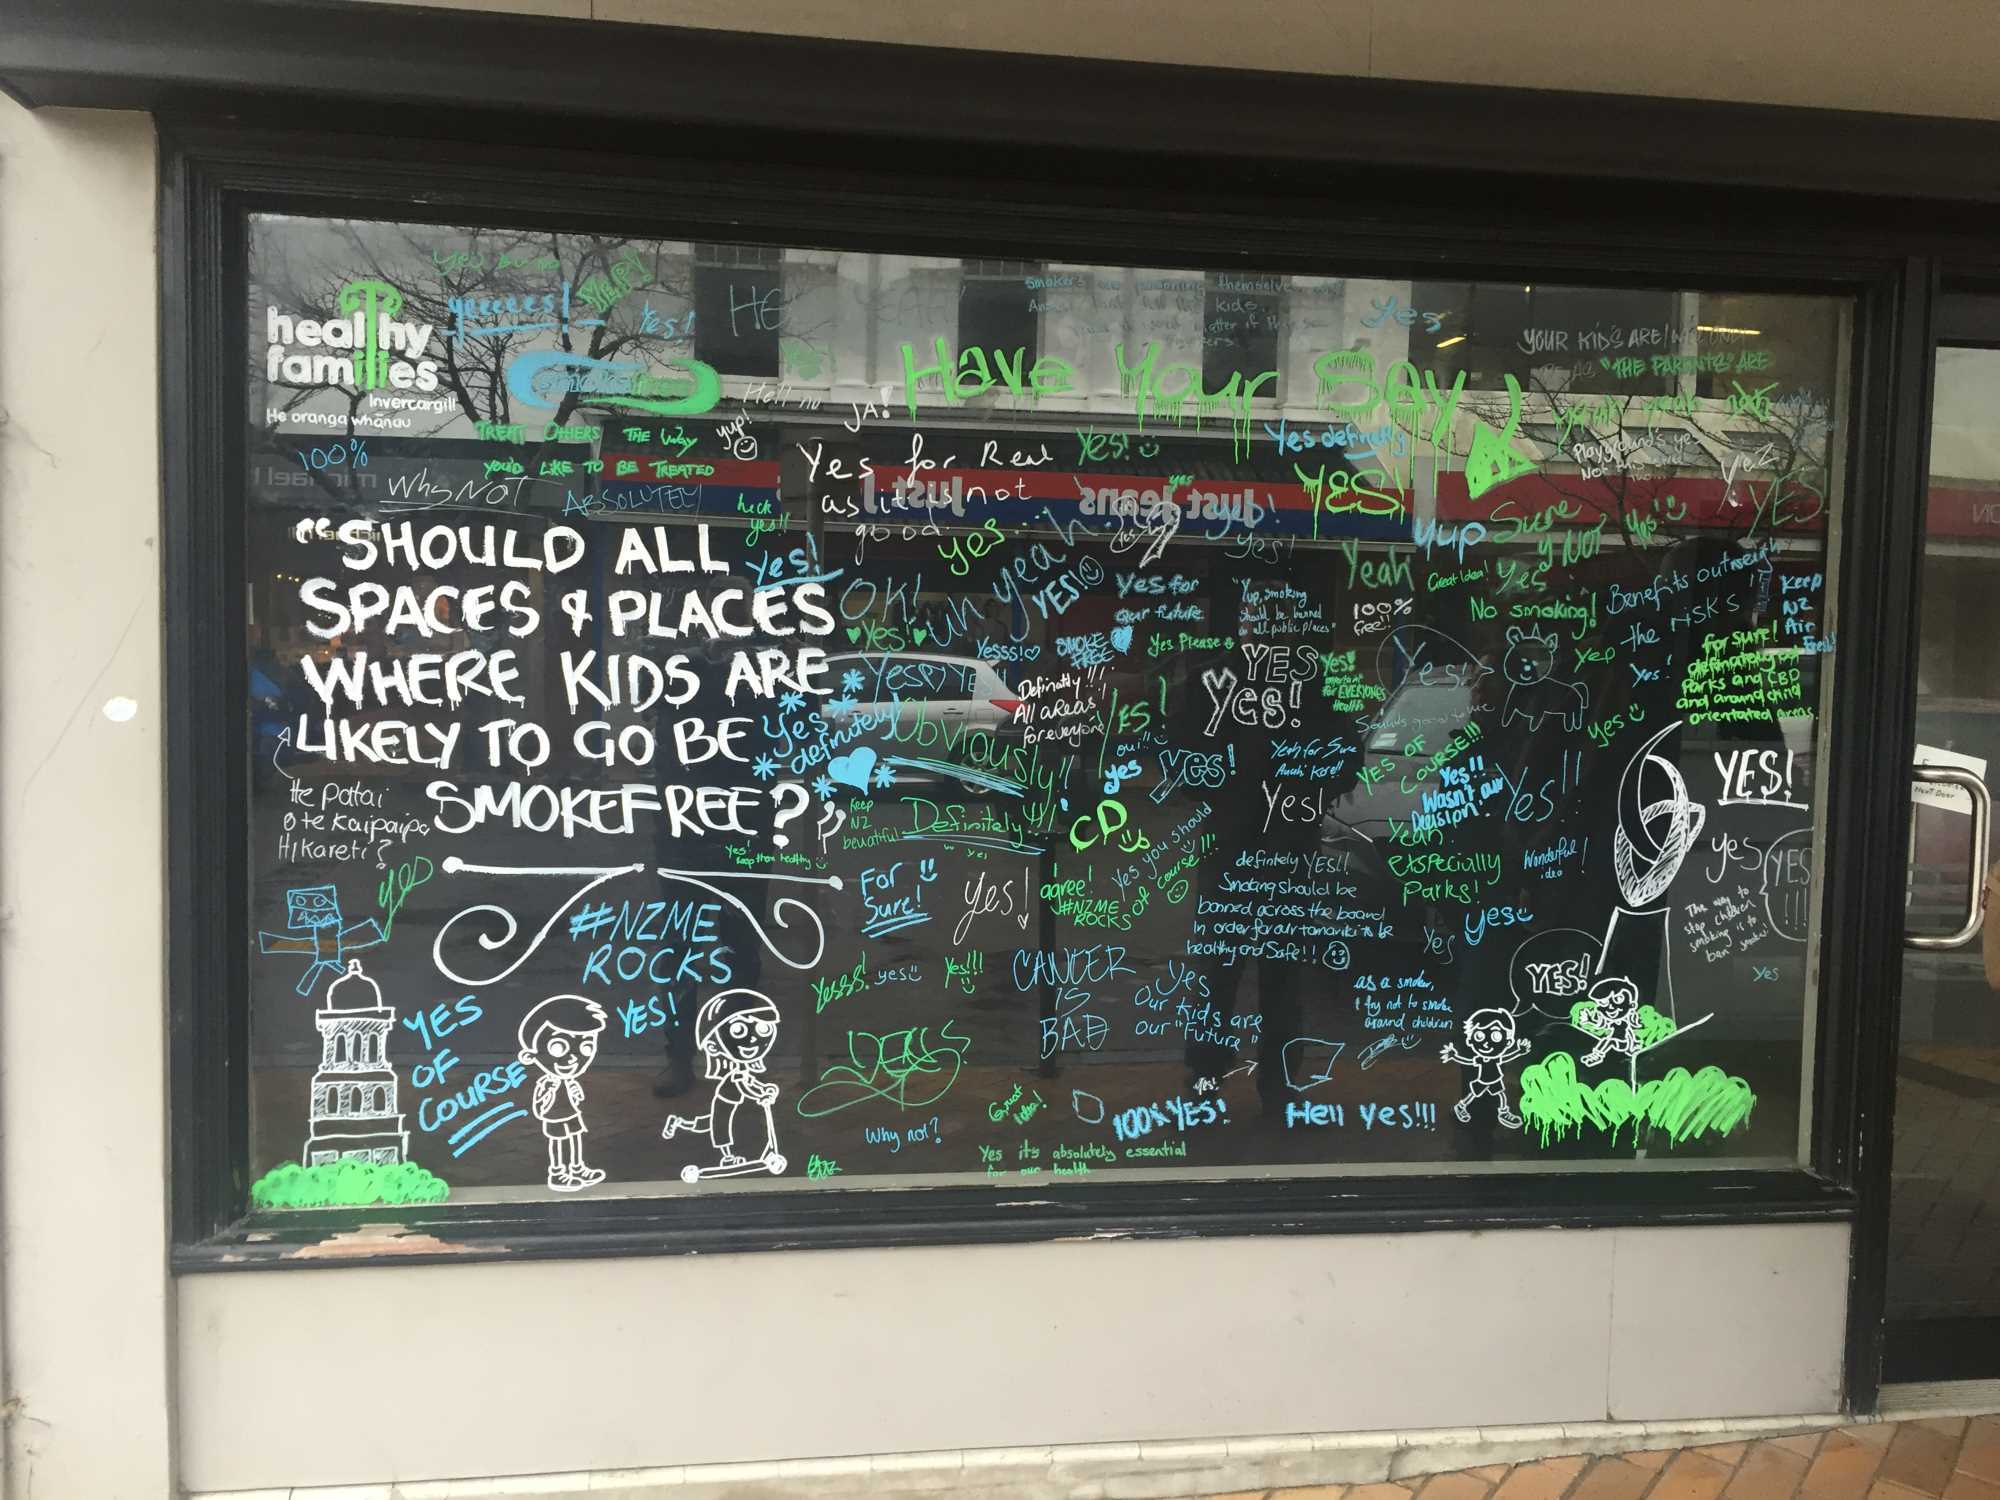 healthy
families
Invercargill
He oranga whānau
yeeeees!
YEP!
Yes!
smokefree
Yes
Have Your SAY
YOUR KID'S ARE
"THE PARENTS" ARE
Hell no
JA!
yup!
TREAT OTHERS THE WAY
YOU'D LIKE TO BE TREATED
100%
WHY NOT
ABSOLUTELY
heck
yes!!
Yes for Real
as it is not
good
Yes!
yes
Yes definetly
YES!
YES
Just Jeans
Just
"SHOULD ALL
SPACES & PLACES
WHERE KIDS ARE
LIKELY TO GO BE
SMOKEFREE?"
He Patai
O te Kaipaipa
Hikareti?
Yes!
yes
OK!
Yes!
uh yeah
YES!
Yesss!
SMOKE
FREE
Yes for
our future
Yes Please
"Yup, smoking
should be banned
in all public places"
Yes!
Yeah
100%
free!!
Yup
Great Idea!
Yes
y NOT
Yes!
No smoking!
Benefits outweigh
the risks
Keep
NZ
Air
Fresh!
for sure!
definately by
Parks and CBD
and around child
orientated areas.
Yep
Yes!
yes
YES
Yes!
Yes!
important
for EVERYONES
Health
Yes!
Sounds good to me
YES!!
Definatly!!!
All areas!
for everyone!
YES!
oui!!
yes
Yes!
Yes
definitely!
Obviously!!
Definitely!!!
Keep
NZ
beautiful
Yes!
keep them healthy
CD
Yes you should
of course!!!
Yeah for Sure
Yes!
YES OF
COURSE!!!
Yes!!
Wasn't our
Decision!
Yes!!
Yeah
etspecially
Parks!
Wonderful
idea!
YES!
yes
YES
!!!
The way to
stop children
smoking is to
ban smoking
Yes
#NZME
ROCKS
For
Sure!
yes!
I
agree!
#NZME
ROCKS
definitely YES!!
Smoking should be
banned across the board
In order for our tamariki to be
healthy and Safe!!
Yes
yes
Yesss!
yes
Yes!!!
CANCER
IS
BAD
Yes
Our Kids are
our "Future"
as a smoker,
I try not to smoke
around children
YES!
YES
OF
COURSE
YES!
Why not?
Great
Idea!
yes!
100% YES!
Hell yes!!!
Yes it's absolutely essential
for our health